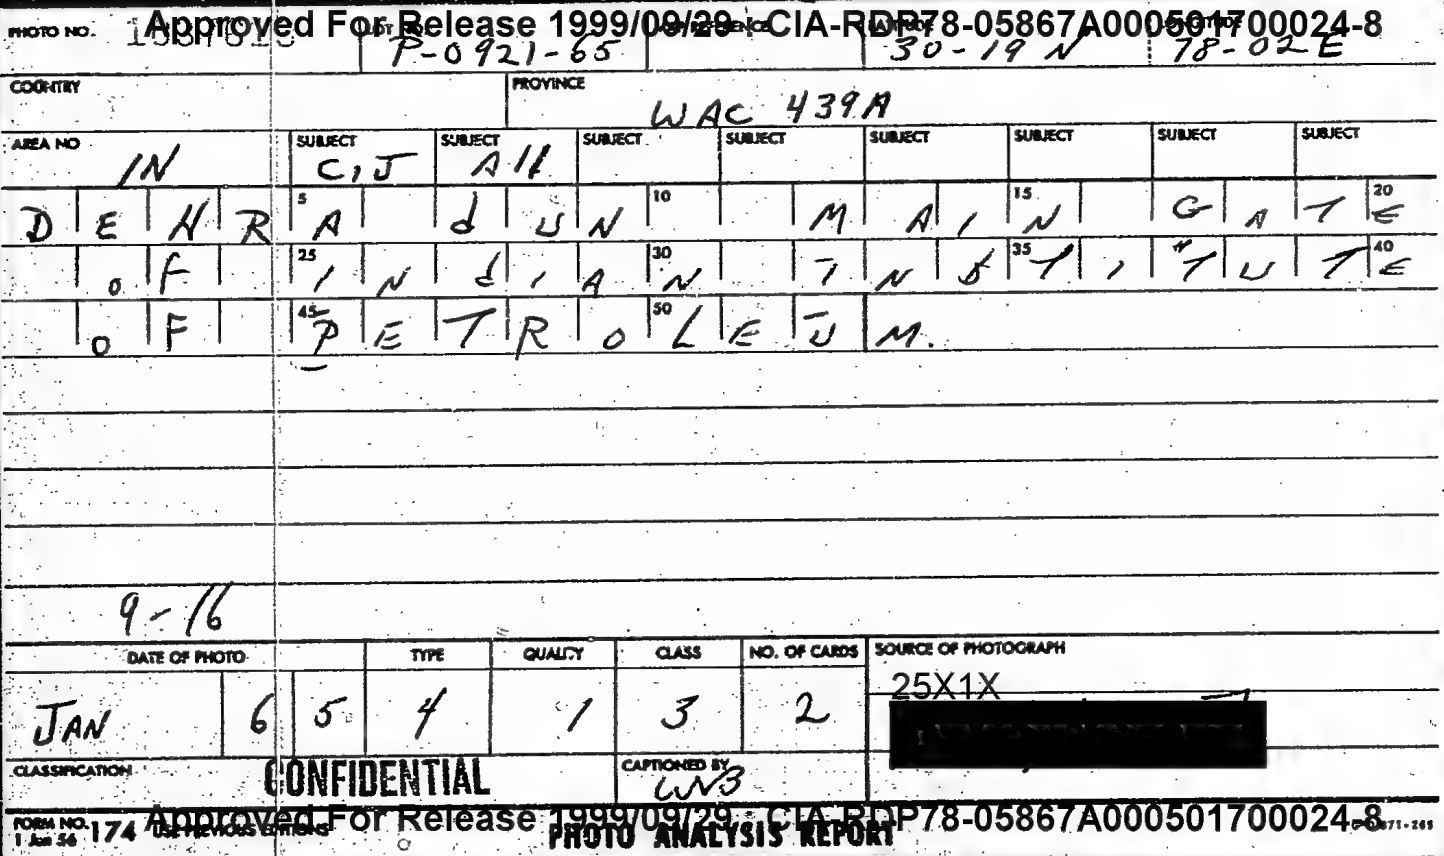 Approved For Release 1999/09/29 : CIA-RDP78-05867A000501700024-8
PHOTO NO. P-0921-65 30-19 N 78-02 E
COUNTRY PROVINCE WAC 439A
AREA NO IN SUBJECT C,J SUBJECT All SUBJECT SUBJECT SUBJECT SUBJECT SUBJECT SUBJECT
5 10 15 20
DEHRA dUN MAIN GATE
25 30 35 40
OF INdIAN INSTITUTE
45 50
OF PETROLEUM.
9-16
DATE OF PHOTO TYPE QUALITY CLASS NO. OF CARDS SOURCE OF PHOTOGRAPH
JAN 6 5 4 1 3 2 25X1X
CLASSIFICATION CONFIDENTIAL CAPTIONED BY
FORM NO. 174 USE PREVIOUS EDITIONS
1 Jan 56
PHOTO ANALYSIS REPORT
Approved For Release 1999/09/29 : CIA-RDP78-05867A000501700024-8